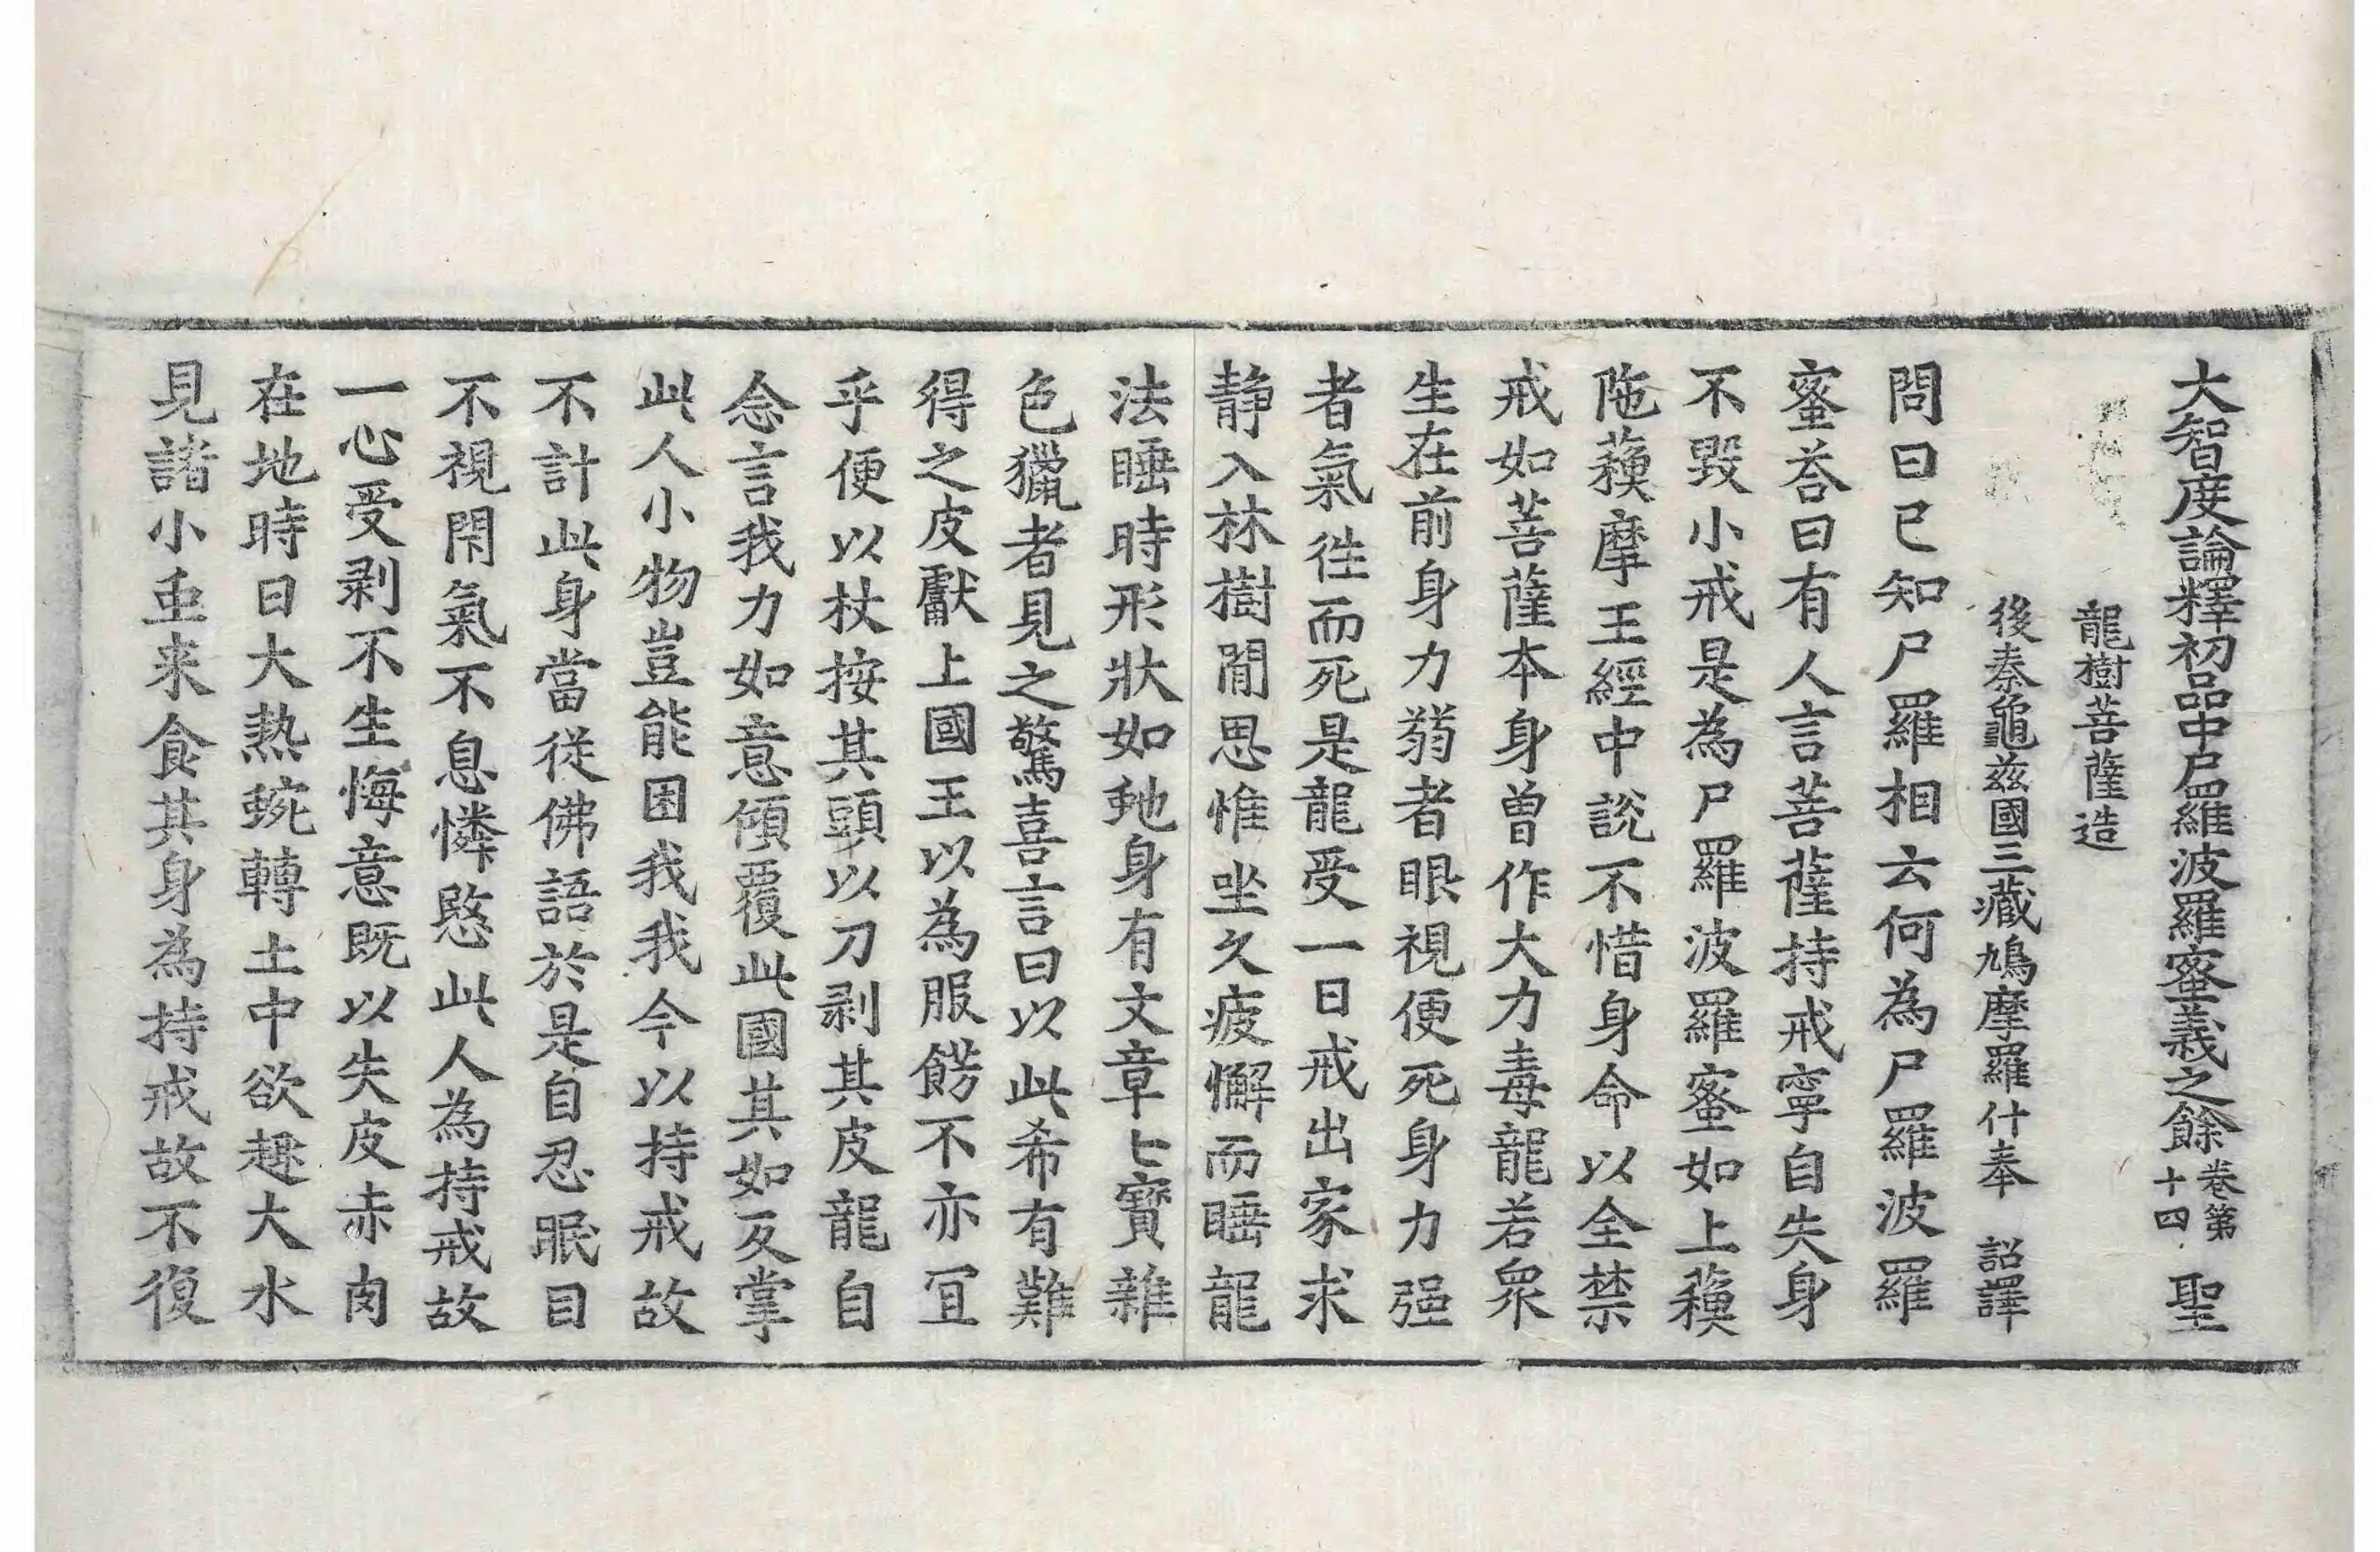 大智度論釋初品中尸羅波羅蜜義之餘卷第十四 聖
龍樹菩薩造
後秦龜茲國三藏鳩摩羅什奉 詔譯
問曰已知尸羅相云何為尸羅波羅
蜜荅曰有人言菩薩持戒寧自失身
不毀小戒是為尸羅波羅蜜如上蘓
陁蘓摩王經中說不惜身命以全禁
戒如菩薩本身曾作大力毒龍若衆
生在前身力弱者眼視便死身力强
者氣徃而死是龍受一日戒出家求
静入林樹間思惟坐久疲懈而睡龍
法睡時形狀如虵身有文章七寶雜
色獵者見之驚喜言曰以此希有難
得之皮獻上國王以為服餝不亦冝
乎便以杖按其頭以刀剥其皮龍自
念言我力如意傾覆此國其如反掌
此人小物豈能困我我今以持戒故
不計此身當從佛語於是自忍眠目
不視閇氣不息憐愍此人為持戒故
一心受剥不生悔意既以失皮赤肉
在地時日大熱蜿轉土中欲趣大水
見諸小䖝来食其身為持戒故不復